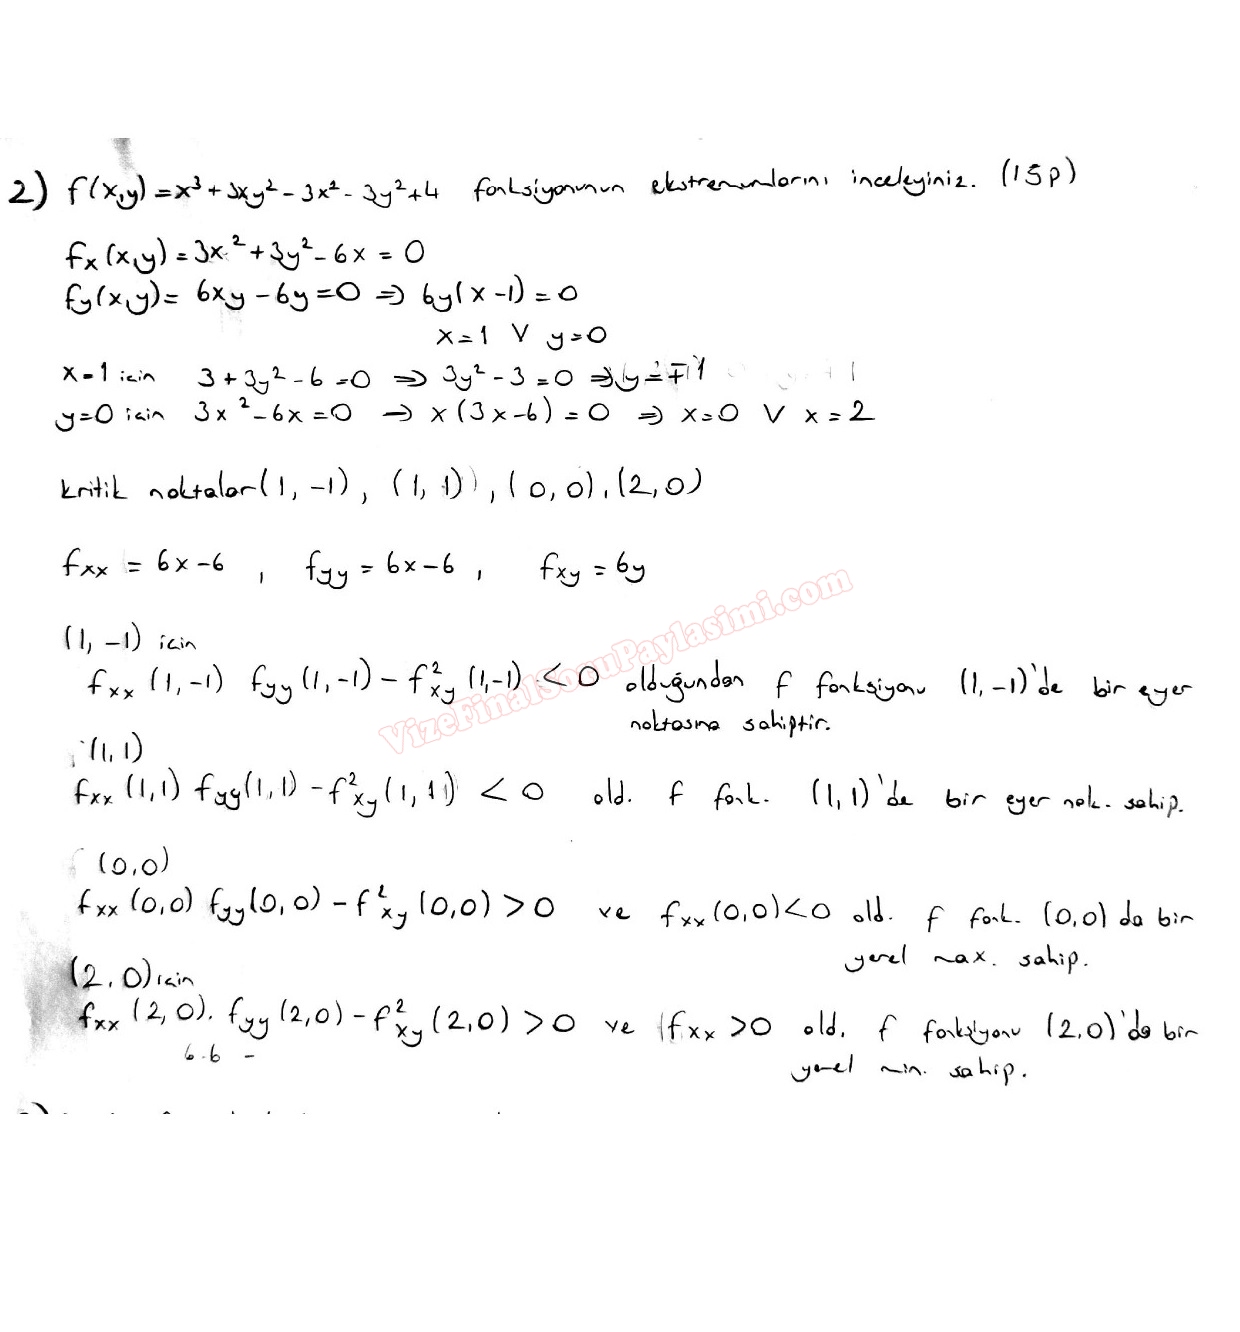 2) f(x,y) = x³ + 3xy² - 3x² - 3y² + 4 fonksiyonunun ekstremumlarını inceleyiniz. (15p)
fx(x,y) = 3x² + 3y² - 6x = 0
fy(x,y) = 6xy - 6y = 0 ⇒ 6y(x-1) = 0
x=1 ∨ y=0
x=1 için 3 + 3y² - 6 = 0 ⇒ 3y² - 3 = 0 ⇒ y = ∓1
y=0 için 3x² - 6x = 0 → x(3x-6) = 0 ⇒ x=0 ∨ x=2
kritik noktalar (1,-1), (1,1), (0,0), (2,0)
fxx = 6x-6, fyy = 6x-6, fxy = 6y
(1,-1) için
fxx (1,-1) fyy (1,-1) - f²xy (1,-1) < 0 olduğundan f fonksiyonu (1,-1)'de bir eyer
noktasına sahiptir.
(1,1)
fxx (1,1) fyy(1,1) - f²xy(1,1) < 0 old. f fonk. (1,1)'de bir eyer nok. sahip.
(0,0)
fxx (0,0) fyy(0,0) - f²xy (0,0) > 0 ve fxx(0,0)<0 old. f fonk. (0,0) da bir
yerel max. sahip.
(2,0) için
fxx (2,0). fyy (2,0) - f²xy (2,0) > 0 ve fxx > 0 old. f fonksiyonu (2,0)'da bir
6.6 -
yerel min. sahip.
VizeFinalSoruPaylasimi.com